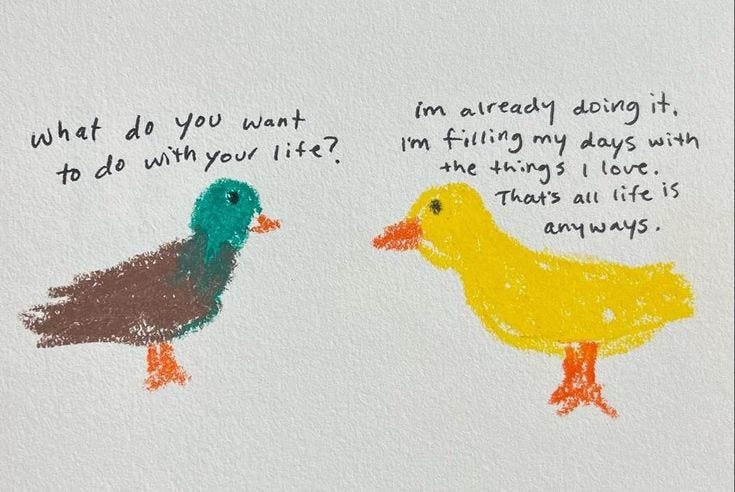 what do you want
to do with your life?
im already doing it.
I'm filling my days with
the things I love.
That's all life is
anyways.